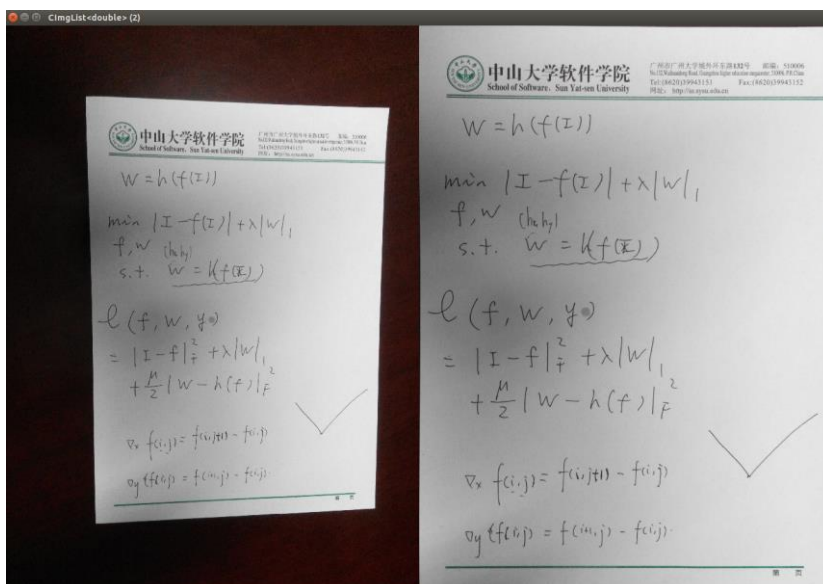 CImgList<double> (2)
中山大学软件学院
School of Software, Sun Yat-sen University
W = h(f(I))
min |I-f(I)| + λ|W|₁
f, w (hx hy)
s.t. W = h(f(I))
ℓ(f, W, y)
= |I-f|²_F + λ|W|₁
+ μ/2 |W-h(f)|²_F
∇x f(i,j) = f(i,j+1) - f(i,j)
∇y f(i,j) = f(i+1,j) - f(i,j)
第 页
中山大学软件学院
School of Software, Sun Yat-sen University
广州市广州大学城外环东路132号 邮编：510006
Tel:(8620)39943151 Fax:(8620)39943152
网址：http://ss.sysu.edu.cn
W = h(f(I))
min |I-f(I)| + λ|W|₁
f, w (hx hy)
s.t. W = h(f(I))
ℓ(f, W, y)
= |I-f|²_F + λ|W|₁
+ μ/2 |W-h(f)|²_F
∇x f(i,j) = f(i,j+1) - f(i,j)
∇y f(i,j) = f(i+1,j) - f(i,j)
第 页